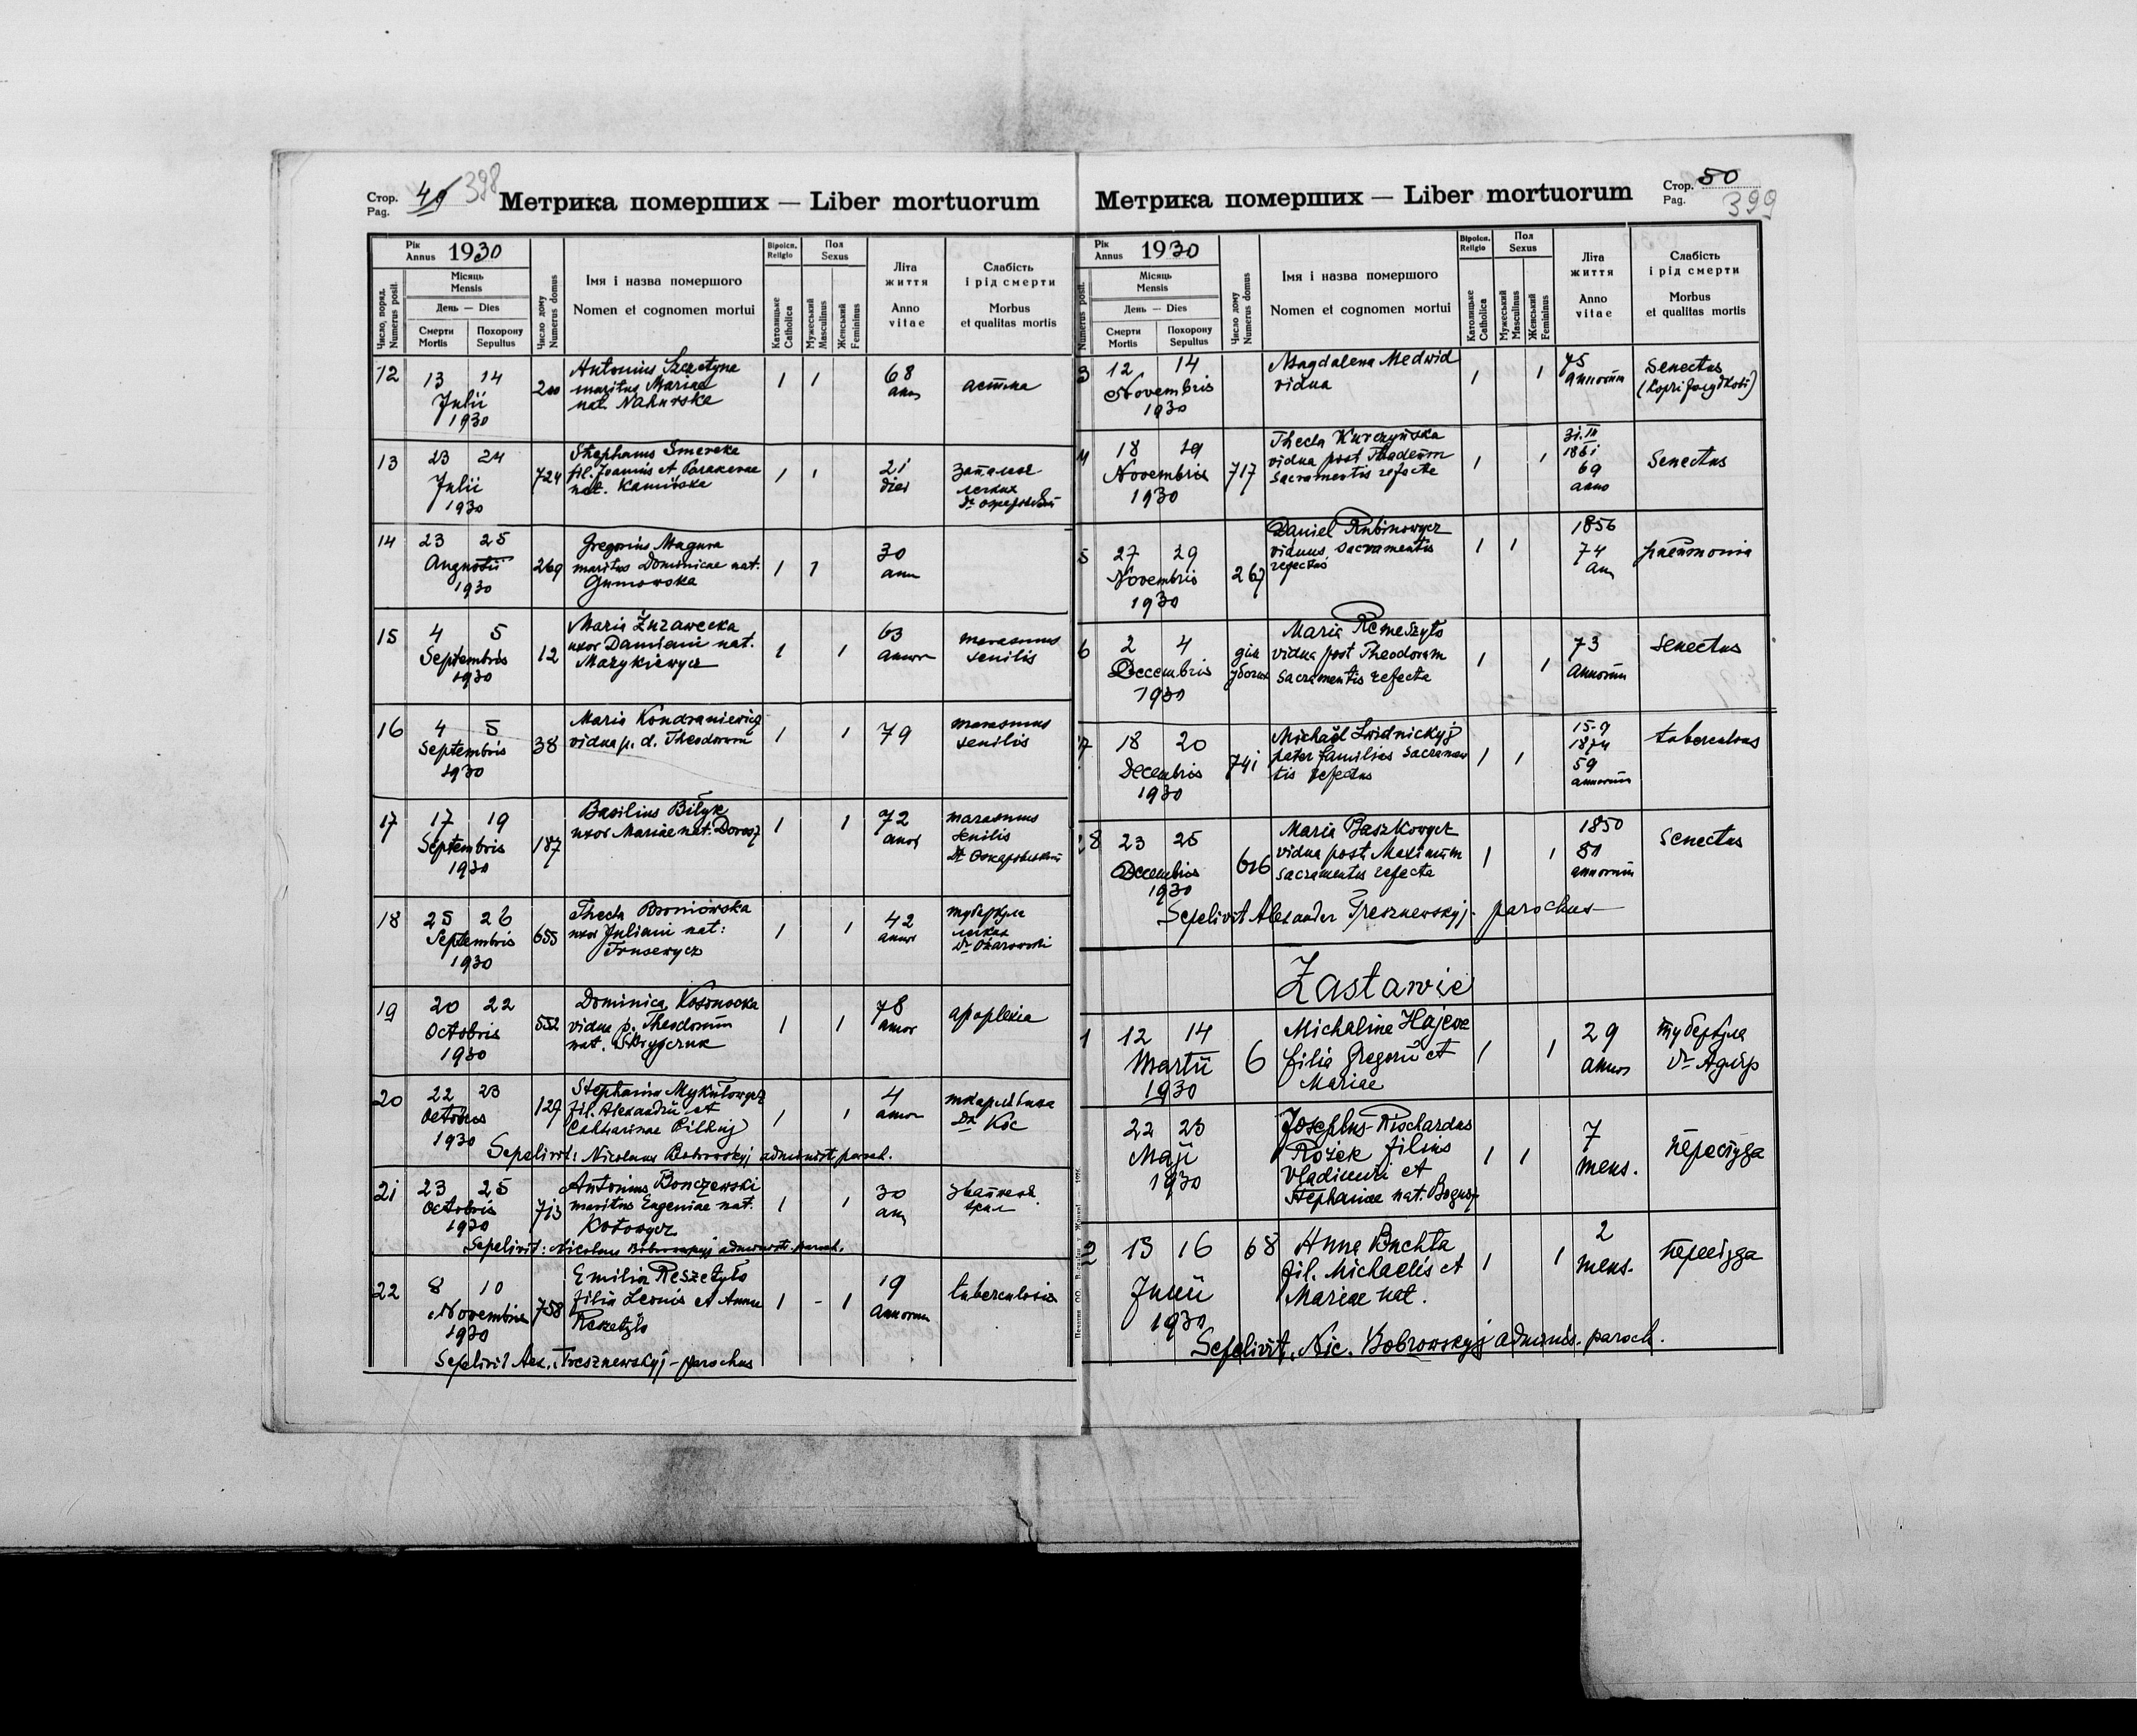 Стор. 49 398
Pag.
Метрика померших — Liber mortuorum
Рік
Annus 1930
Місяць
Mensis
День — Dies
Смерти
Mortis
Похорону
Sepultus
Число, поряд.
Numerus posit.
Число дому
Numerus domus
Імя і назва помершого
Nomen et cognomen mortui
Віроісп.
Religio
Католицьке
Catholica
Пол
Sexus
Мужеський
Masculinus
Женський
Femininus
Літа
життя
Anno
vitae
Слабість
і рід смерти
Morbus
et qualitas mortis
12 13 14 Julii 1930 200
Antonius
maritus Mariae
nat. Nahurska
1 1 68 астма
13 23 24 Julii 1930 724
Stephanus Smereka
fil. Joannis et Parakevae
nat. Kamińska
1 1 21 dies
запалення
легких
14 23 25 Augustii 1930 269
Gregorius Magura
maritus Dominicae nat.
Gumowska
1 1 30 ann
15 4 5 Septembris 1930 12
Maria Żurawecka
uxor Damiani nat.
Mazykiewycz
1 1 63 annor
marasmus
senilis
16 4 5 Septembris 1930 38
Maria Kondraniewicz
vidua p. d. Theodorum
1 1 79
marasmus
senilis
17 17 19 Septembris 1930 187
Basilius Bilyk
uxor Mariae nat. Dorosz
1 1 72 annor
marasmus
senilis
18 25 26 Septembris 1930 655
Thecla Broniowska
uxor Juliani nat:
Trusewycz
1 1 42 annor
туберкула
легких
Dr Ozarowski
19 20 22 Octobris 1930 552
Dominica Kosonocka
vidua p. Theodorum
nat.
1 1 78 annor apoplexia
20 22 23 Octobris 1930 127
Stephania Mykitowycz
fil. Alexandrii et
Catharinae Pilkiij
1 1 4 annor
шкарлятина
Dr Koc
Sepelivit: Nicolaus Bobrowskyj administ. paroch.
21 23 25 Octobris 1930 713
Antonius Bonczewski
maritus Eugeniae nat.
Kotowycz
1 1 30 ann
Sepelivit: Nicolaus Bobrowskyj administ. paroch.
22 8 10 Novembris 1930 758
Emilia Reszetyło
filia Leonis et Annae
Reszetyło
1 - 1 19 Annorum tuberculosis
Sepelivit Alex. Tresznewskyj - parochus
Метрика померших — Liber mortuorum
Стор. 50
Pag. 399
Рік
Annus 1930
Місяць
Mensis
День — Dies
Смерти
Mortis
Похорону
Sepultus
Numerus posit.
Число дому
Numerus domus
Імя і назва помершого
Nomen et cognomen мortui
Віроісп.
Religio
Католицьке
Catholica
Пол
Sexus
Мужеський
Masculinus
Женський
Femininus
Літа
життя
Anno
vitae
Слабість
і рід смерти
Morbus
et qualitas mortis
3 12 14 Novembris 1930
Magdalena Medwid
vidua
1 1 75 annorum
Senectus
4 18 19 Novembris 1930 717
Thecla Kurczyńska
vidua post Thadeum
Sacramentis refecta
1 1 31. III 1861 69 anno Senectus
5 27 29 Novembris 1930 267
Daniel Rubinowycz
viduus, sacramentis
refectus
1 1 1856 74 ann pneumonia
6 2 4 Decembris 1930
дім
убогих
Maria Remeszyło
vidua post Theodorum
Sacramentis refecta
1 1 73 Annorum Senectus
7 18 20 Decembris 1930 741
Michaël Świdnickyj
pater familias Sacramen
tis refectus
1 1 15-9 1874 59 annorum tuberculosis
28 23 25 Decembris 1930 616
Maria Baszkowycz
vidua post Maximum
Sacramentis refecta
1 1 1850 81 annorum Senectus
Sepelivit Alexander Tresznewskyj - parochus —
Zastawie
1 12 14 Martii 1930 6
Michalina Hajecz
filia Gregorii et
Mariae
1 1 29 annor
туберкула
22 23 Maji 1930
Josephus-Rischardus
Rożek filius
Vladimiri et
Stephaniae nat. Bogusz
1 1 7 mens. перестуда
2 15 16 Junii 1930 68
Anna Buchta
fil. Michaelis et
Mariae nat.
1 1 2 mens. перестуда
Sepelivit, Nic. Bobrowskyj adminis. paroch.